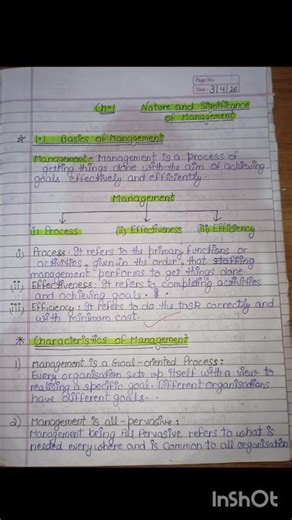 Page No.
Date 3/4/26
Ch-1 Nature and Significance
of Management
* 1.1 Basics of Management
Management - Management is a process of
getting things done with the aim of achieving
goals effectively and efficiently.
Management
i) Process (ii) Effectiveness (iii) Efficiency
i) Process : It refers to the primary functions or
activities, given in the order, that staffing
management performs to get things done.
(ii) Effectiveness : It refers to completing activities
and achieving goals.
(iii) Efficiency : It refers to do the task correctly and
with minimum cost.
* Characteristics of Management
1) Management is a Goal-oriented Process :
Every organisation sets up itself with a view to
realising a specific goal. Different organisations
have different goals.
2) Management is all-pervasive :
Management being All Pervasive refers to what is
needed everywhere and is common to all organisation
InShOt